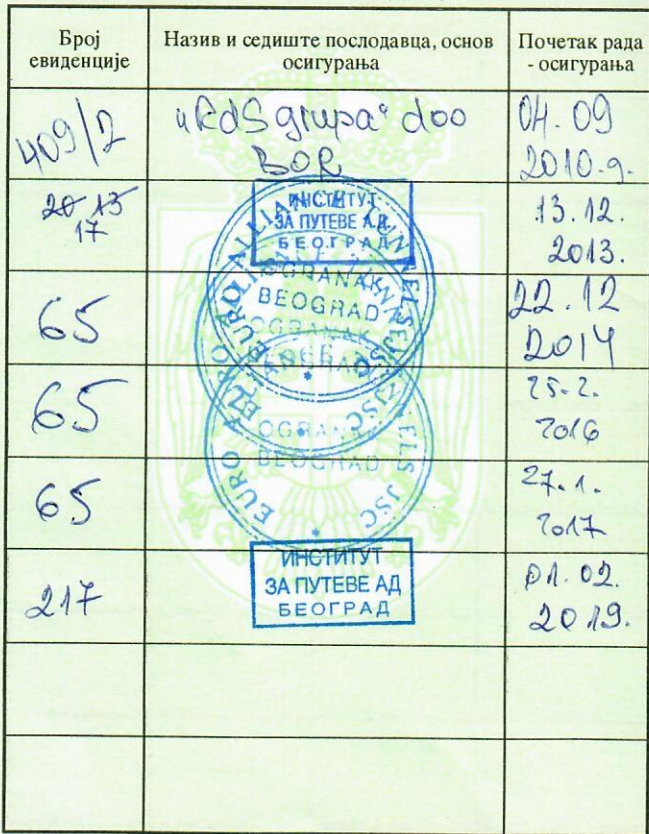 Број
евиденције
Назив и седиште послодавца, основ
осигурања
Почетак рада
- осигурања
409/2
"RdS grupa" doo
BOR
04.09
2010.g.
20 13
17
ИНСТИТУТ
ЗА ПУТЕВЕ А.Д.
БЕОГРАД
13.12.
2013.
65
EURO ALLIANCE TUNNELS JSC
OGRANAK
BEOGRAD
22.12
2014
65
OGRANAK
BEOGRAD
25.2.
2016
65
EURO
JSC
27.1.
2017
217
ИНСТИТУТ
ЗА ПУТЕВЕ АД
БЕОГРАД
01.02.
2019.